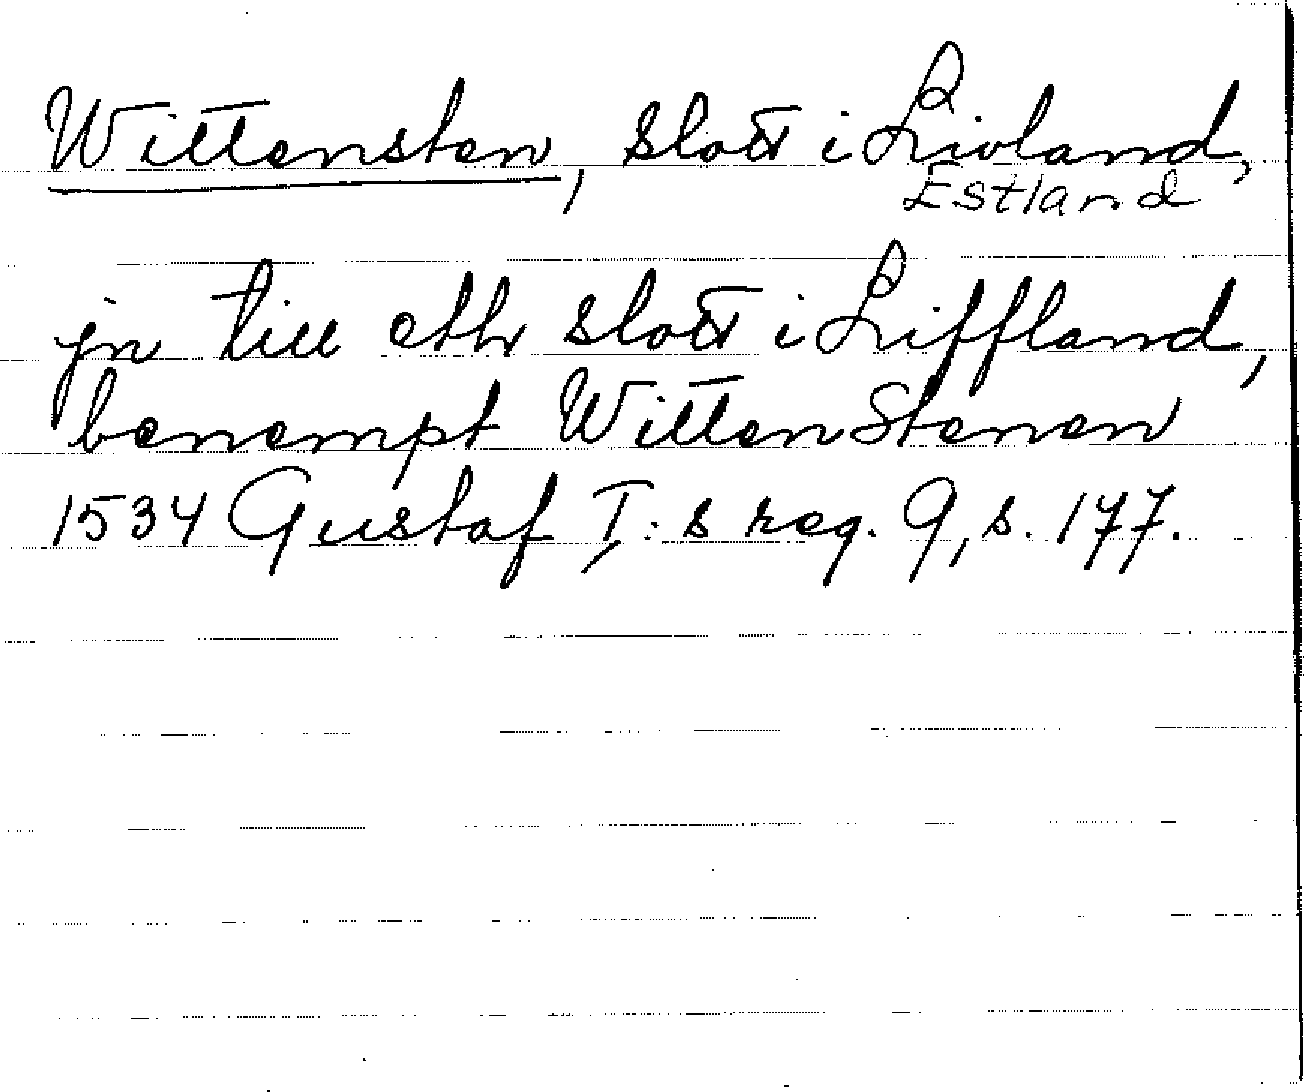 Wittensten, slott i Livland,
Estland
jn till eth slott i Liffland,
benempt Witten Stenen
1534 Gustaf I:s reg. 9, s. 177.